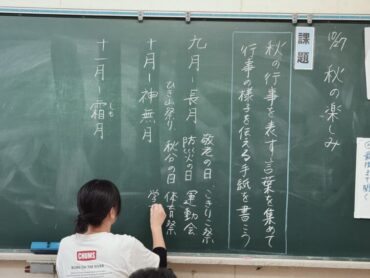 10/27 秋の楽しみ
課題
秋の行事を表す言葉を集めて
行事の様子を伝える手紙を書こう
九月ー長月
敬老の日 こきりこ祭
防災の日 運動会
ひき山祭り 秋分の日 体育祭
学
十月ー神無月
十一月ー霜月
しも
CHUMS